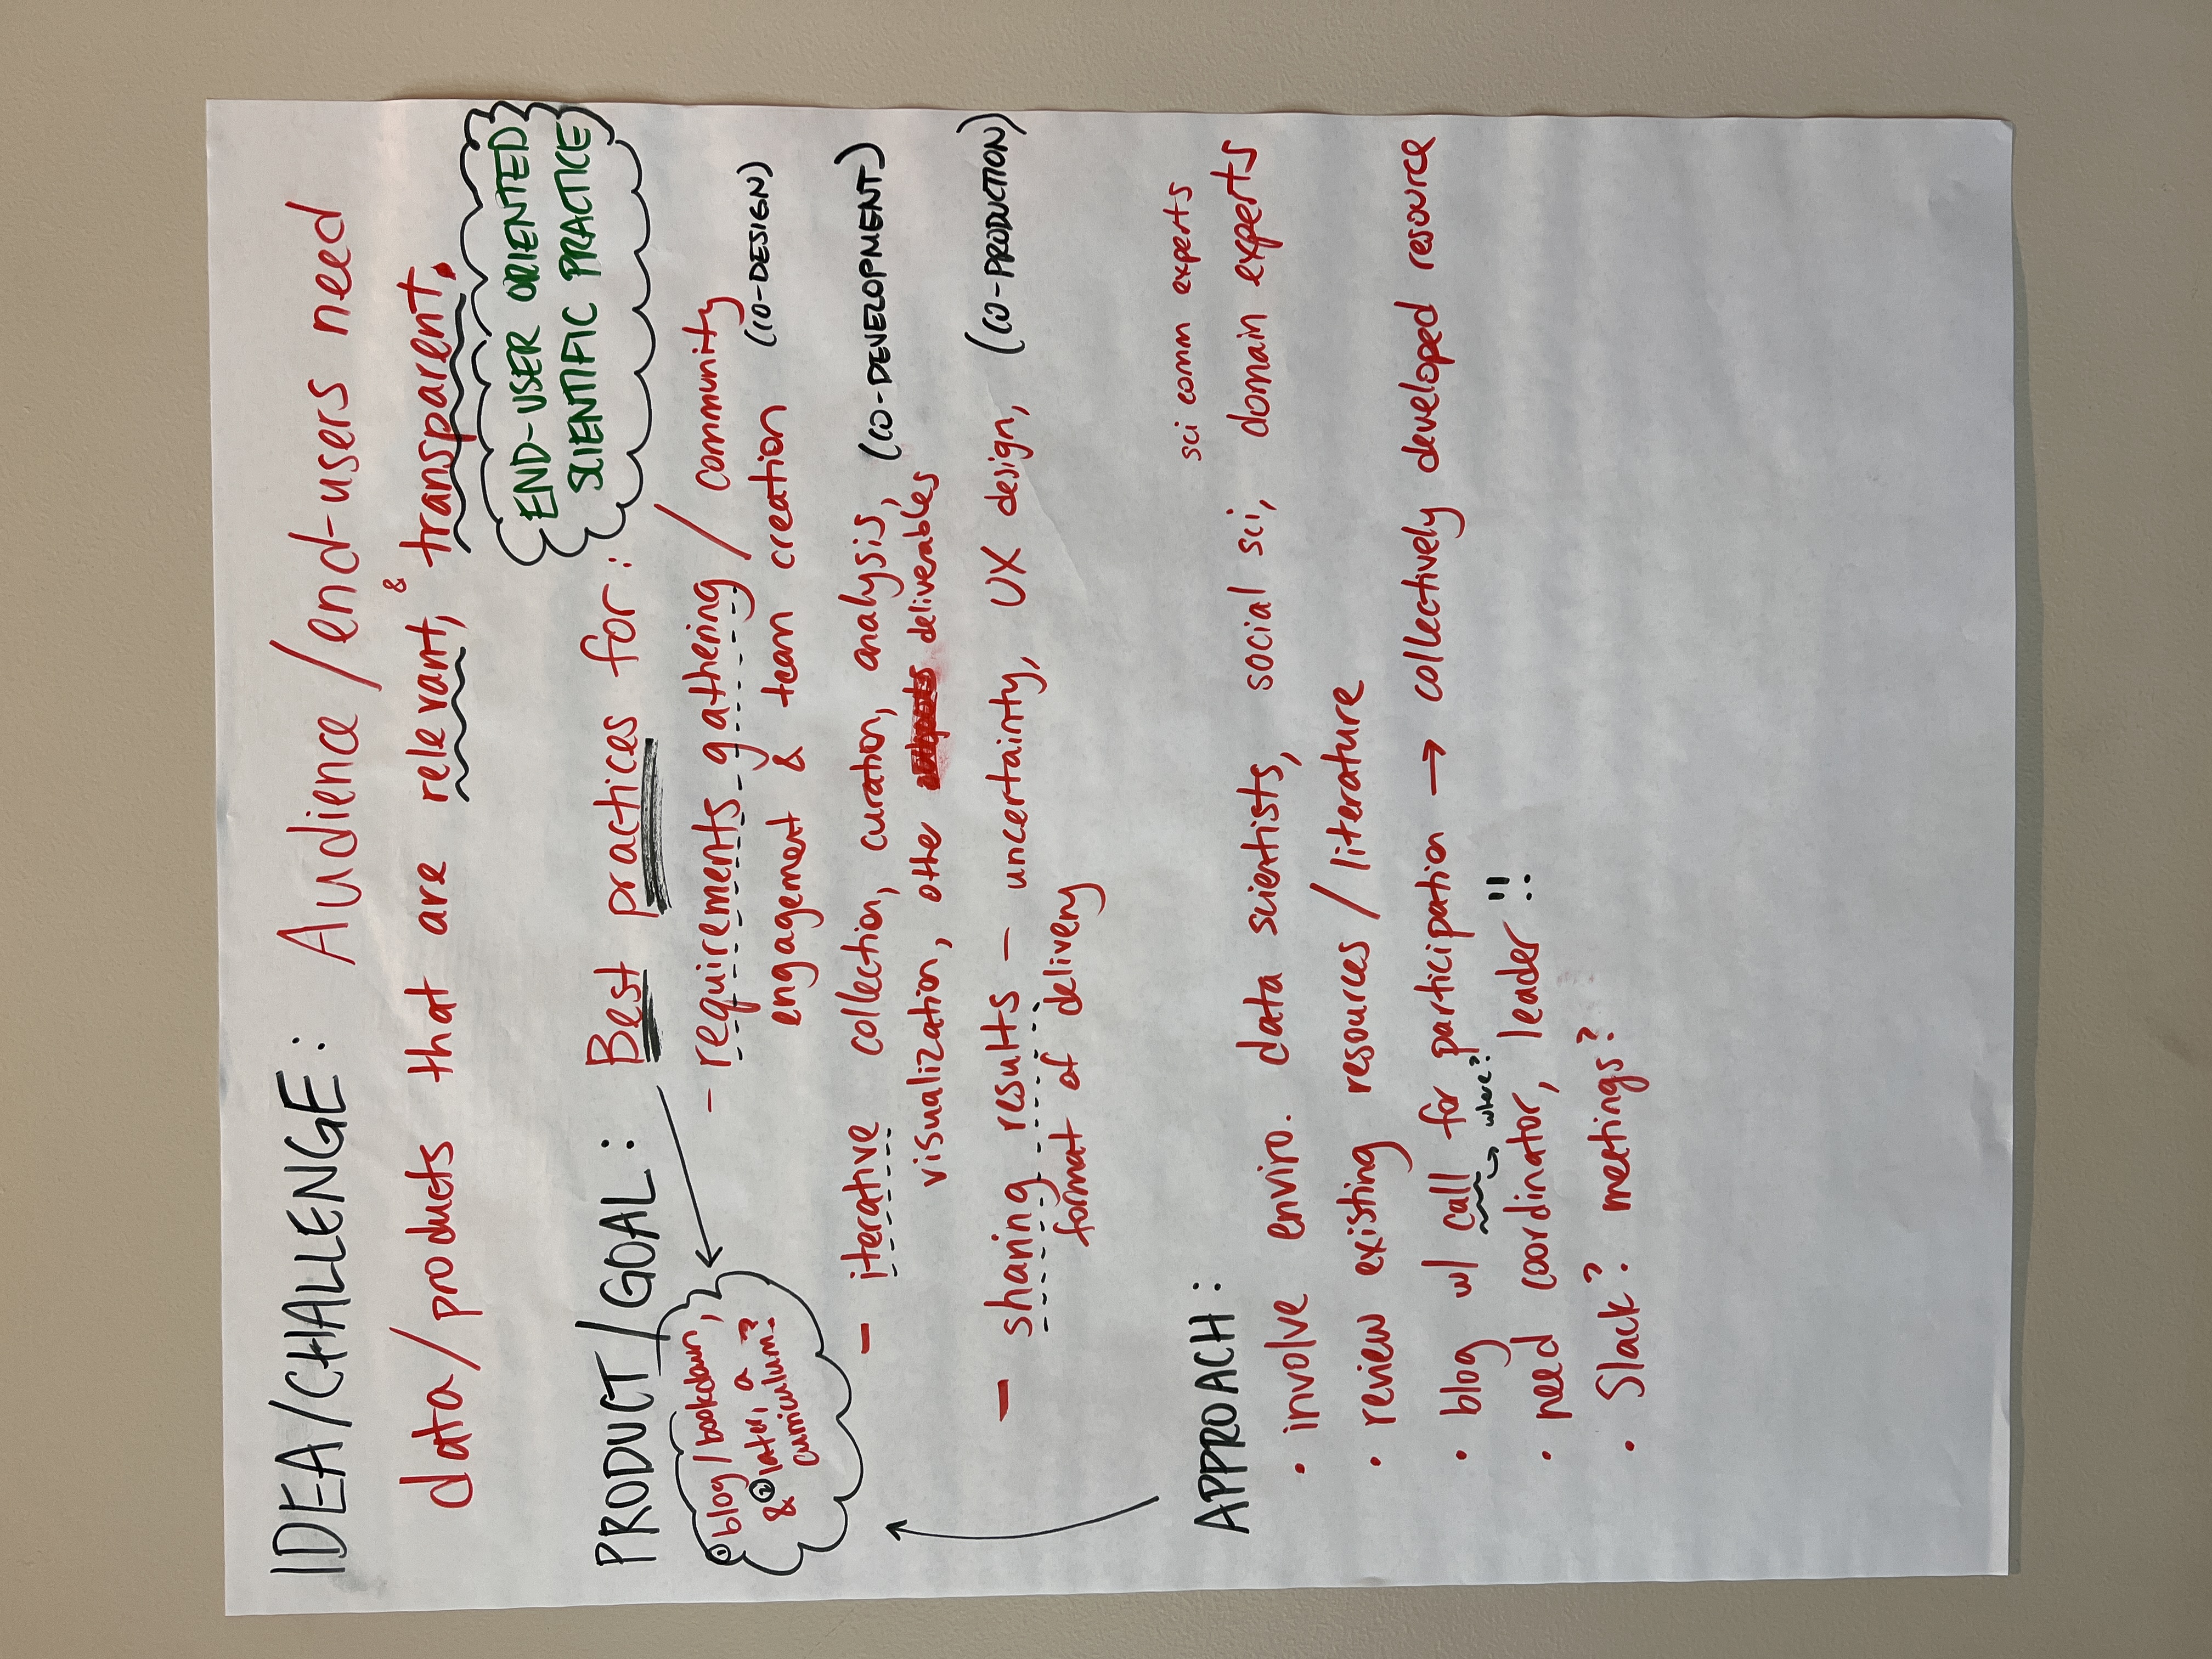 IDEA/CHALLENGE: Audience/end-users need
data/products that are relevant, & transparent.
END-USER ORIENTED
SCIENTIFIC PRACTICE
PRODUCT/GOAL: Best practices for:
① blog/bookdown,
& ② later, a
curriculum?
- requirements gathering / community
engagement & team creation (CO-DESIGN)
- iterative collection, curation, analysis, (CO-DEVELOPMENT)
visualization, other deliverables
- sharing results - uncertainty, UX design, (CO-PRODUCTION)
format of delivery
APPROACH:
sci comm experts
• involve enviro. data scientists, social sci, domain experts
• review existing resources / literature
• blog w/ call for participation → collectively developed resource
↳ where?
• need coordinator, leader!!
• Slack? meetings?